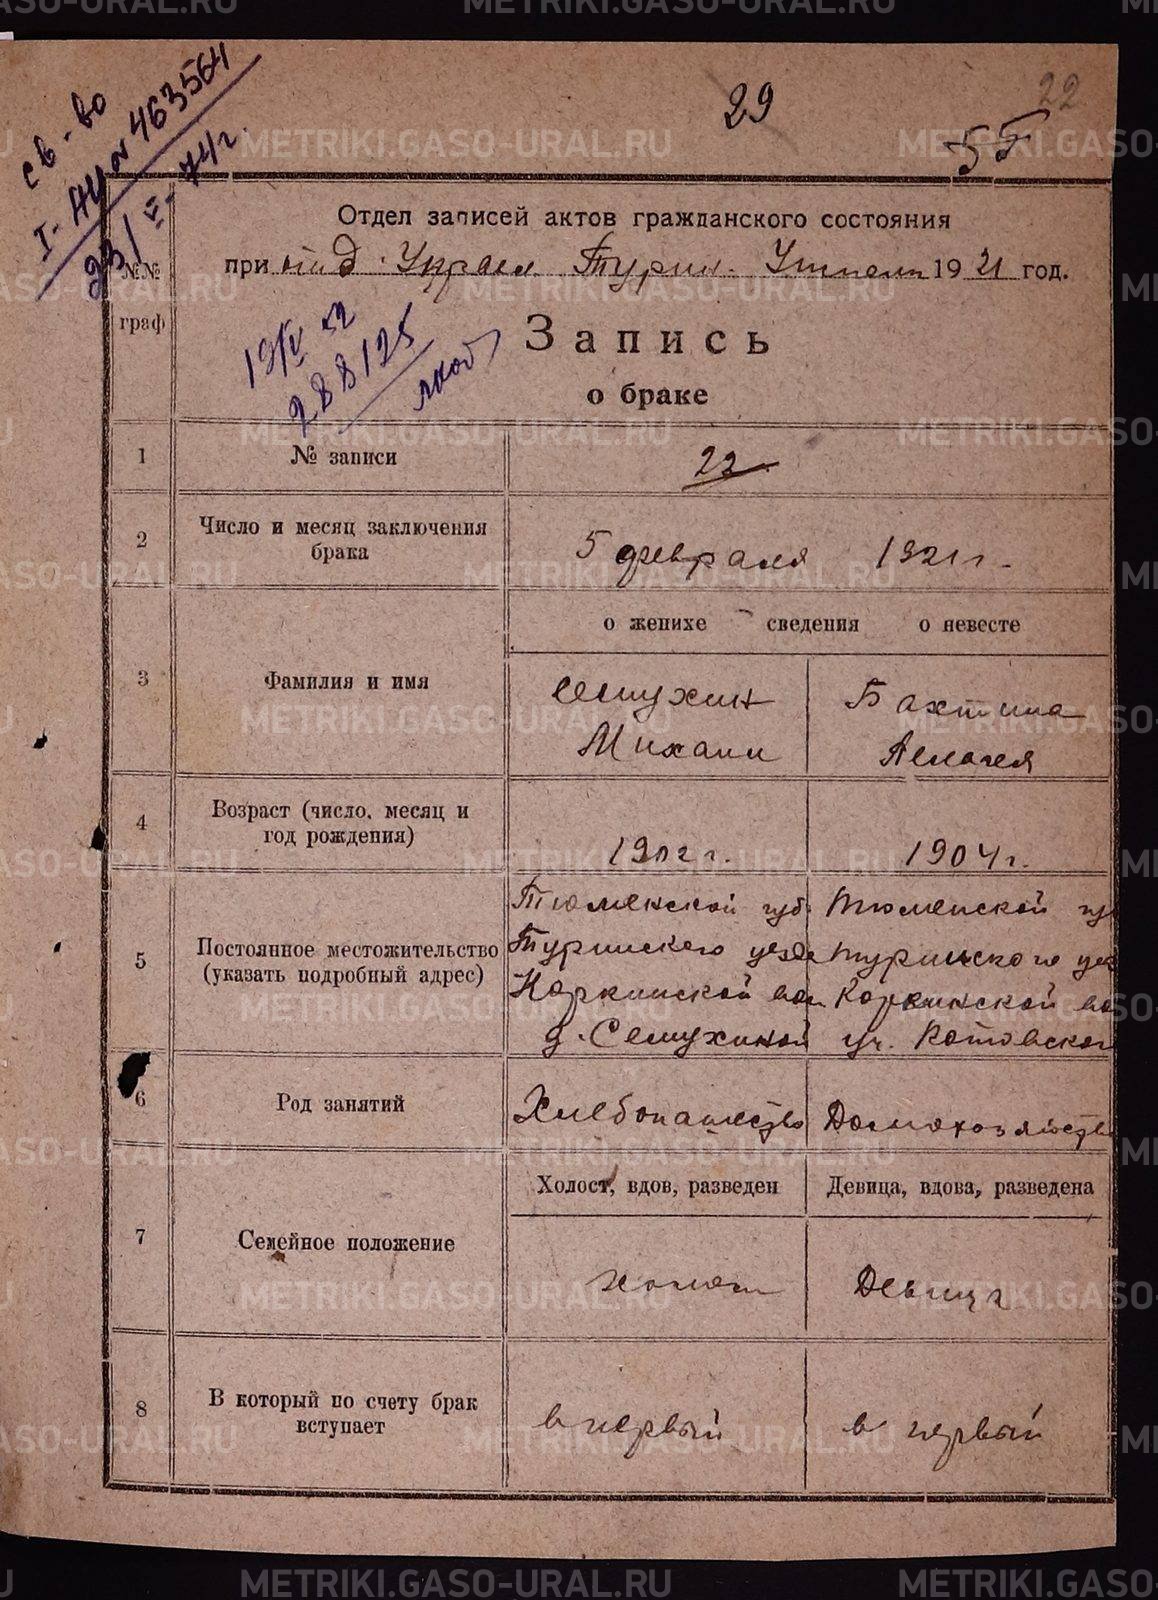 METRIKI.GASO-URAL.RU
29
22
55
св-во
I-АИ № 463564
23/II-74г.
Отдел записей актов гражданского состояния
при п/о Управл. Турин. Уисполк 1921 год.
№№ граф
19/V 52
288125
Запись
о браке
1 № записи 22
2 Число и месяц заключения брака 5 февраля 1921 г.
о женихе сведения о невесте
3 Фамилия и имя
Семухин Бахтина
Михаил Пелагея
4 Возраст (число, месяц и год рождения) 1902 г. 1904 г.
5 Постоянное местожительство (указать подробный адрес)
Тюменской губ. Тюменской гу
Туринского уезда Туринского уез
Коркинской вол Коркинской во
д. Семухиной уч. Котовског
6 Род занятий Хлебопашество Домохозяйство
Холост, вдов, разведен Девица, вдова, разведена
7 Семейное положение холост Девица
8 В который по счету брак вступает в первый в первый